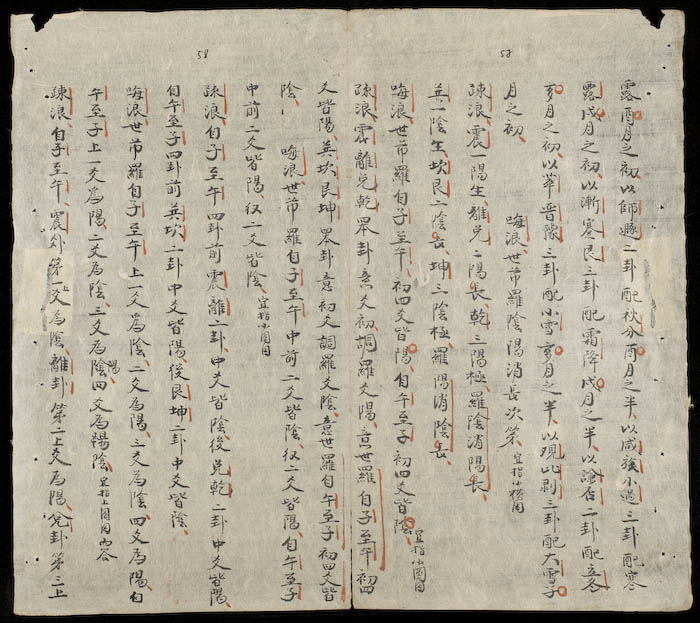 58
露酉月之初以師遯二卦配秋分酉月之半以咸旅小過三卦配寒
露戌月之初以漸寒艮三卦配霜降戌月之半以謙否二卦配立冬
亥月之初以萃晉豫三卦配小雪亥月之半以观比剥三卦配大雪子
月之初 嗨浪世芇羅陰陽消長次第 宜指小橫圖
疎浪震一陽生離兌二陽長乾三陽極羅陰消陽長
巽一陰生坎艮二陰長坤三陰極羅陽消陰長
嗨浪世芇羅自子至午初四爻皆陽自午至子初四爻皆陰 宜指小圓圖
疎浪震離兌乾罘卦意爻初調羅爻陽意世羅自子至午初四
爻皆陽巽坎艮坤罘卦意初爻調羅爻陰意世羅自午至子初四爻皆
陰 嗨浪世芇羅自子至午中前二爻皆陰仅二爻皆陽自午至子
中前二爻皆陽仅二爻皆陰 宜指小圓圖
疎浪自子至午四卦前震離二卦中爻皆陰後兌乾二卦中爻皆陽
自午至子四卦前巽坎二卦中爻皆陽後艮坤二卦中爻皆陰
嗨浪世芇羅自子至午上一爻爲陰二爻爲陽三爻爲陰四爻爲陽自
午至子上一爻爲陽二爻爲陰三爻爲陽四爻爲陰 宜指上圓圖內答
疎浪自子至午震卦第一上爻爲陰離卦第二上爻爲陽兌卦第三上